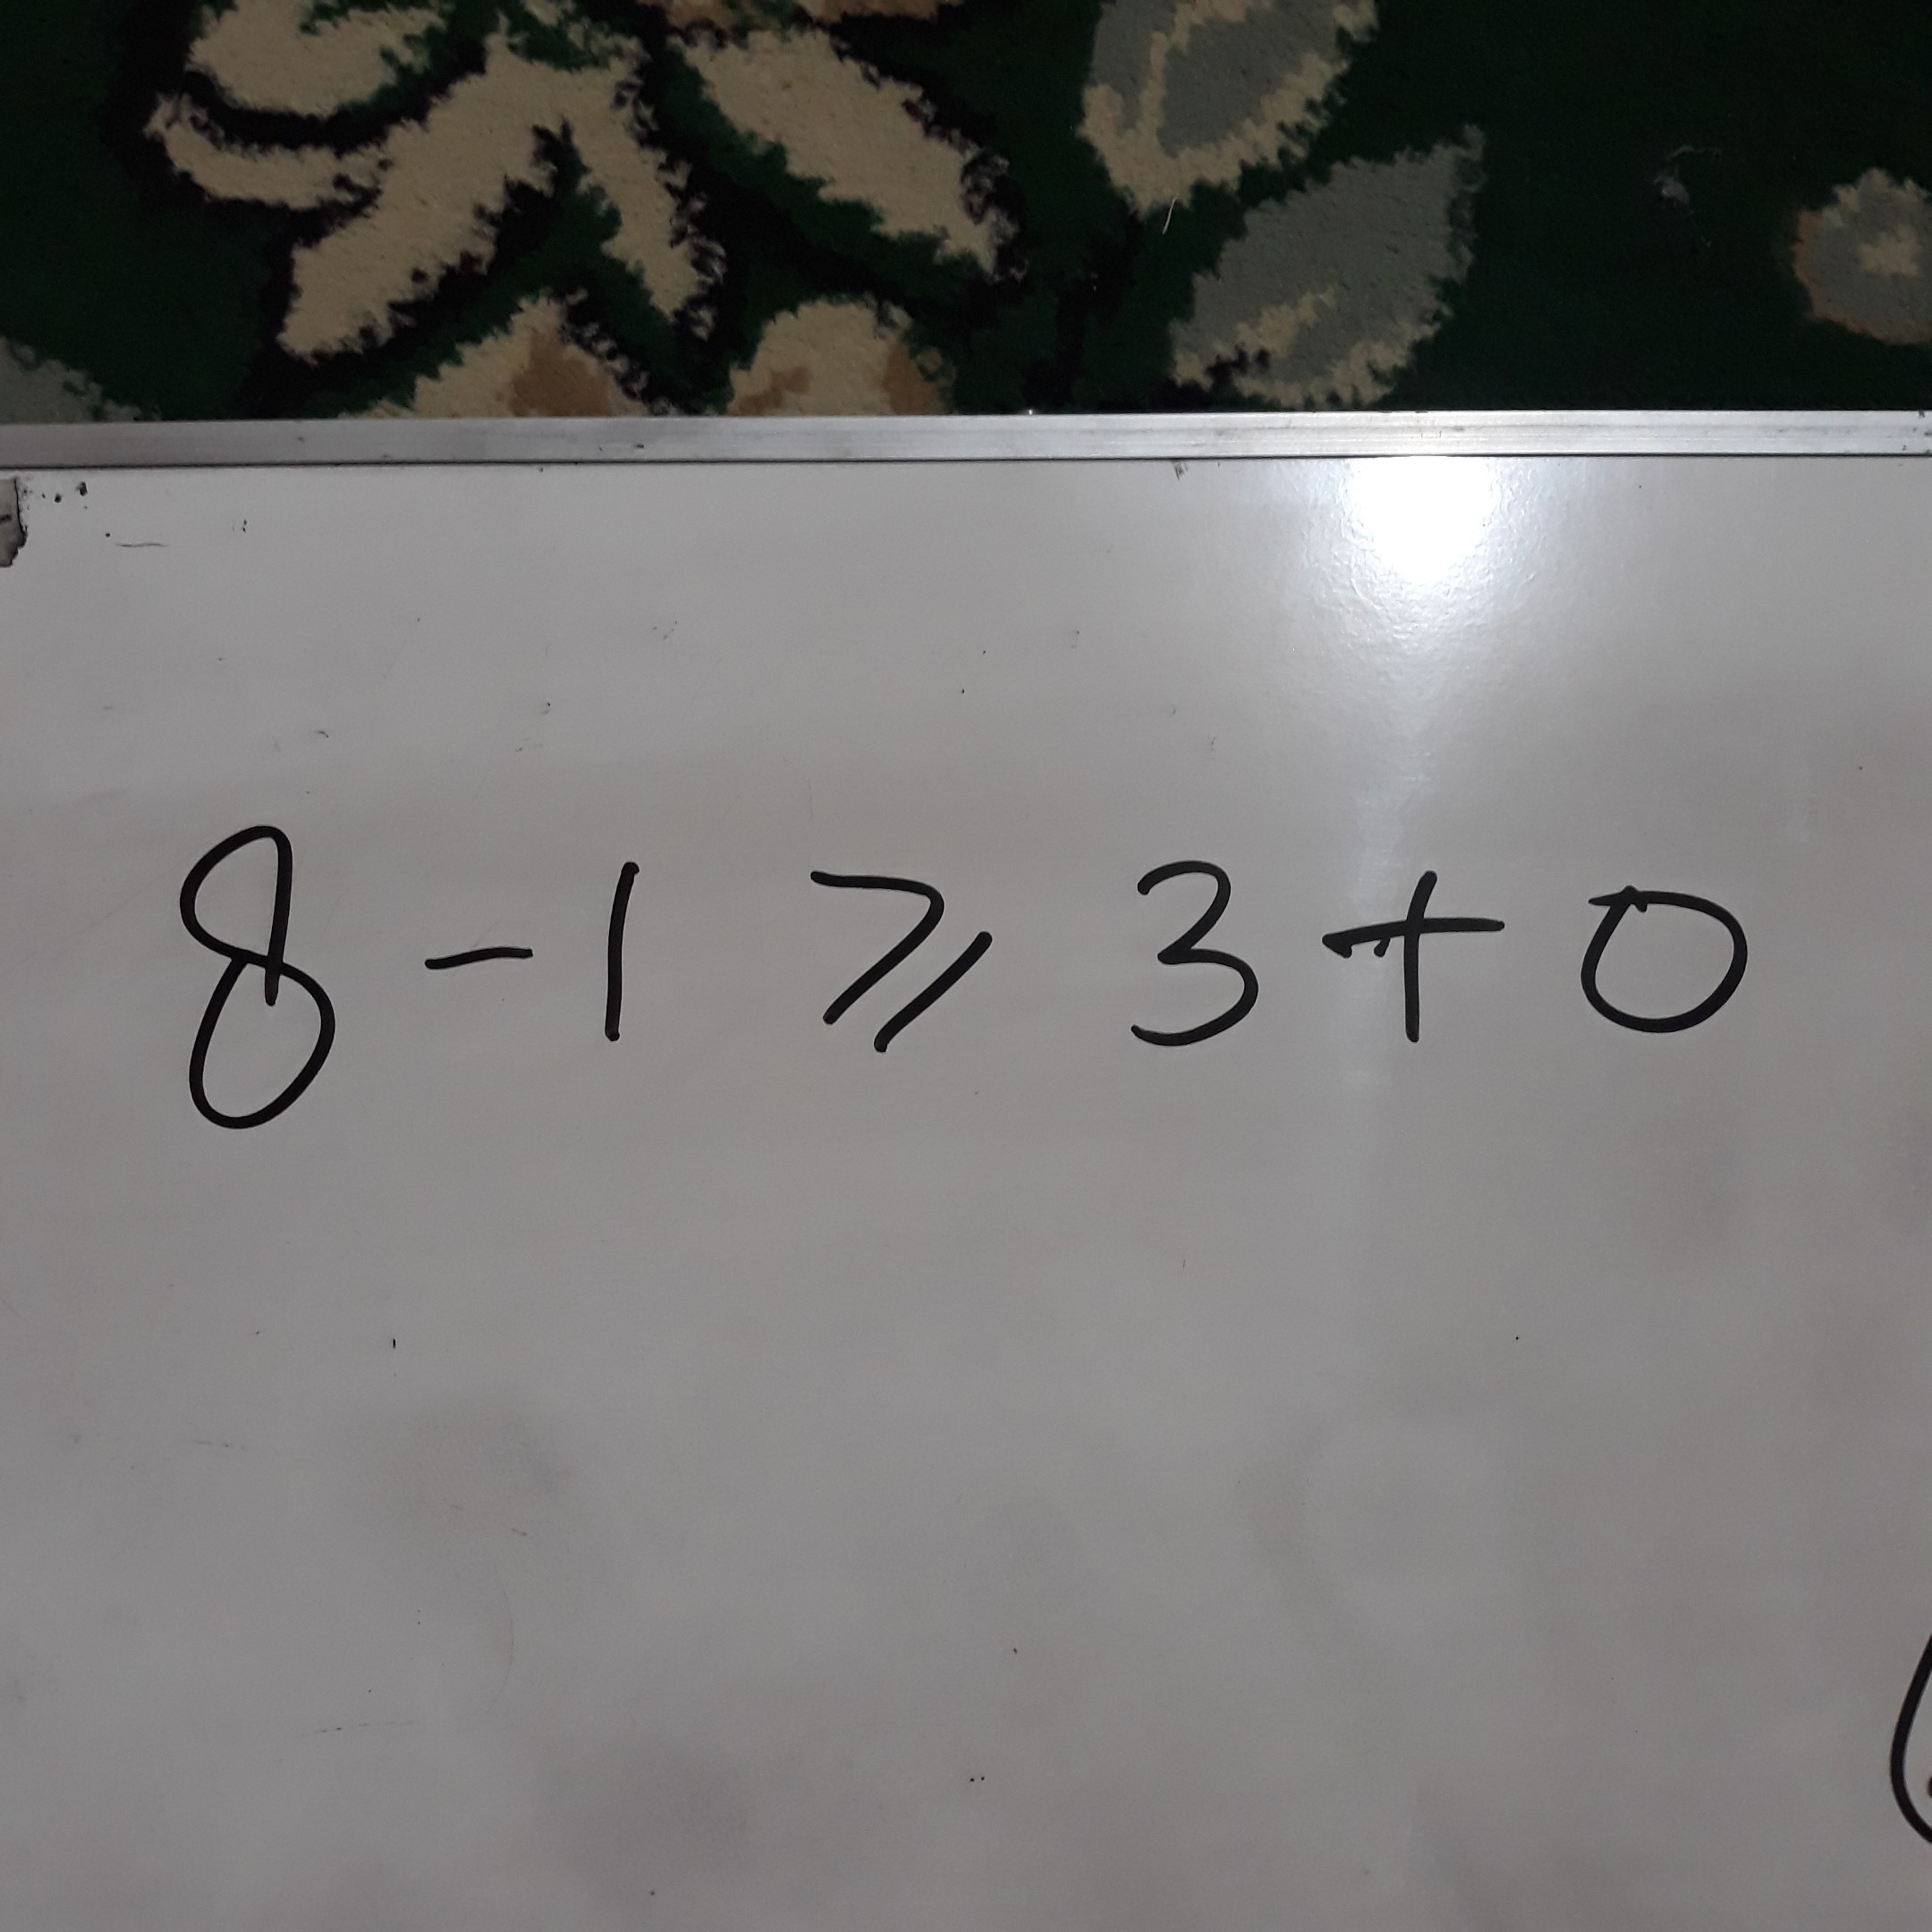 8 - 1 ⩾ 3 + 0